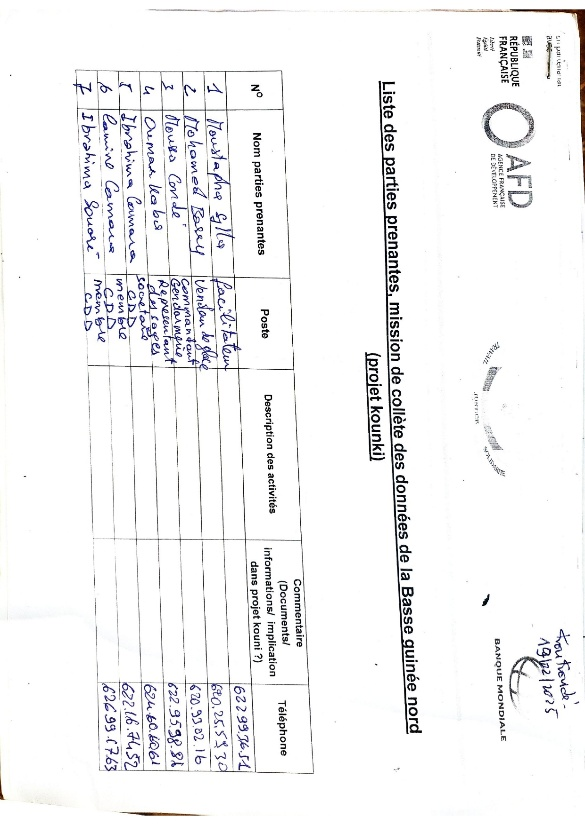 RÉPUBLIQUE
FRANÇAISE
Liberté
Égalité
Fraternité
AFD
AGENCE FRANÇAISE
DE DÉVELOPPEMENT
TRAVAIL
JUSTICE
BANQUE MONDIALE
19/02/2025
Liste des parties prenantes, mission de collète des données de la Basse guinée nord
(projet kounki)
N° Nom parties prenantes Poste Description des activités Commentaire (Documents/ informations/ implication dans projet kouni ?) Téléphone
1 Moustapha Sylla facilitateur
2 Mohamed Barry de glace 620.25.59.30
3 Moussa Condé Commandant Gendarmerie 620.99.02.16
4 Oumar Kaba Representant des sages
5 Ibrahima Camara CDD 624.60.60.61
6 Lamine Camara membre CDD 622.16.74.52
7 Ibrahima membre CDD 626.99.17.63